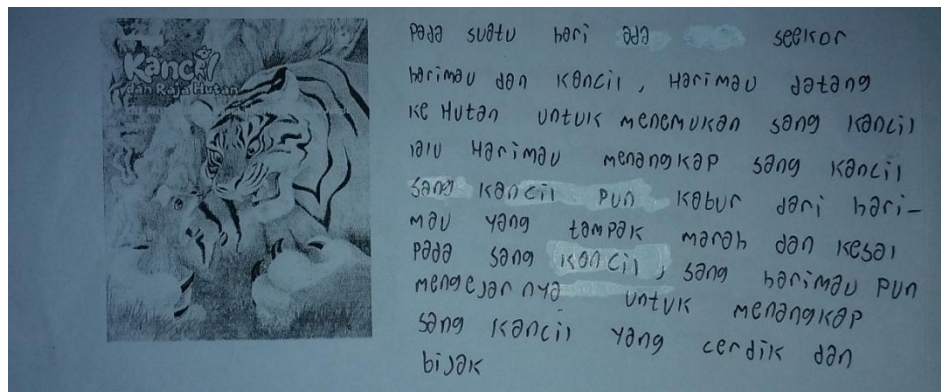 Kancil
dan Raja Hutan
Pada suatu hari ada seekor
harimau dan kancil, Harimau datang
ke Hutan untuk menemukan sang kancil
lalu Harimau menangkap sang kancil
sang kancil pun kabur dari hari-
mau yang tampak marah dan kesal
pada sang kancil, sang harimau pun
mengejarnya untuk menangkap
sang kancil yang cerdik dan
bijak